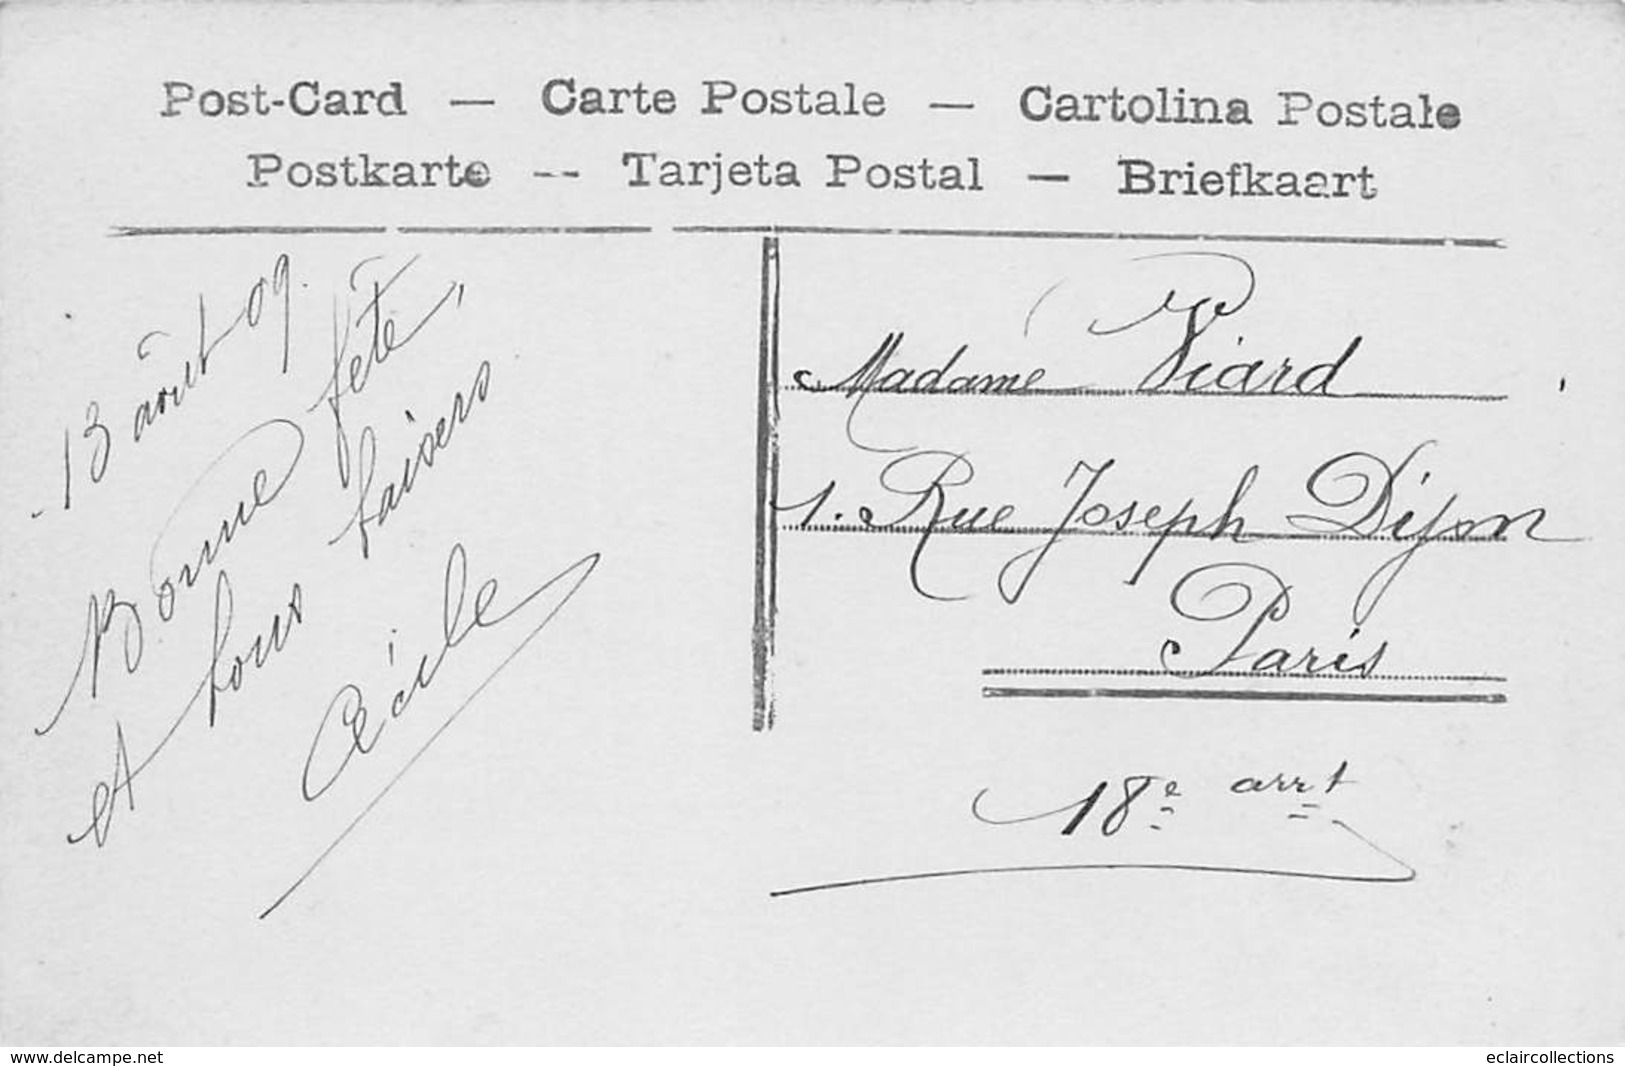 Post-Card — Carte Postale — Cartolina Postale
Postkarte -- Tarjeta Postal — Briefkaart
13 août 09.
Bonne fête,
et tous baisers
Cécile
Madame Piard
1. Rue Joseph Dijon
Paris
18e arrt
www.delcampe.net
eclaircollections